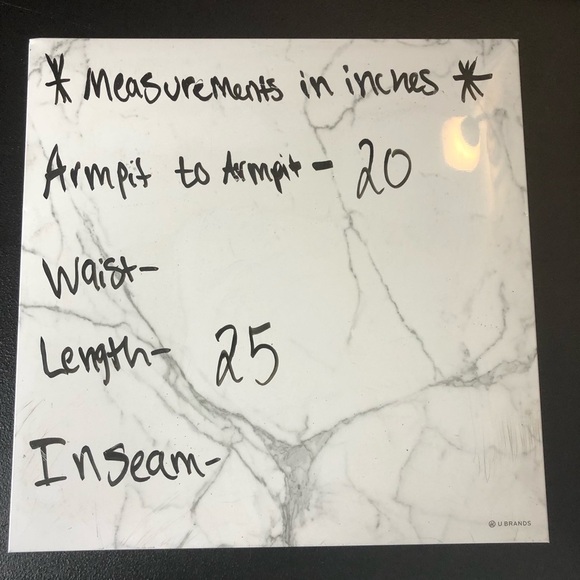 * Measurements in inches *
Armpit to Armpit - 20
Waist-
Length- 25
Inseam-
U BRANDS